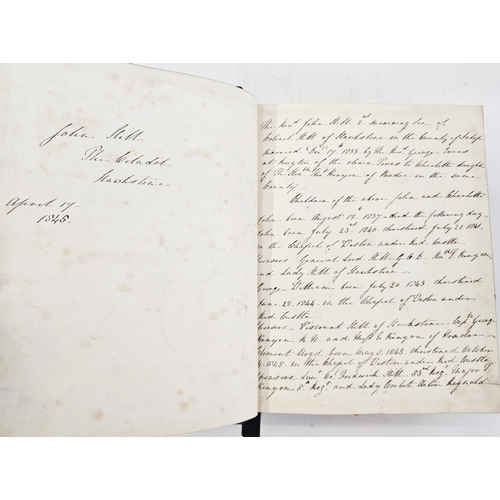 John Hill
The Citadel
Hawkstone
April 17
1845.
The Revd. John Hill 2d surviving Son of
Colonel Hill of Hawkstone in the County of Salop
married Decr. 17th 1833 by the Revd. George
at of the above to Charlotte daughter
of The Honble. Thos. Kenyon of Pradoe in the same
County
Children of the above John and Charlotte
John born August 15th 1837 died the following day
John born July 23rd 1840 christened July 28 1841.
in the Chapel of Weston under Red Castle
Sponsors General Lord Hill G.C.B. Kenyon
and Lady Hill of Hawkstone.
George William born July 20 1843. christened
June 28 1844. in the Chapel of Weston under
Red Castle
Sponsors - Viscount Hill of Hawkstone Captn. George
Kenyon R.N. and Miss E Kenyon of Pradoe
Clement Lloyd born May 5 1845. christened October
1845. in the Chapel of Weston under Red Castle
Sponsors. Frederick Hill 53rd Regt. Major
Kenyon Regt. and Lady Corbet Acton Reynald